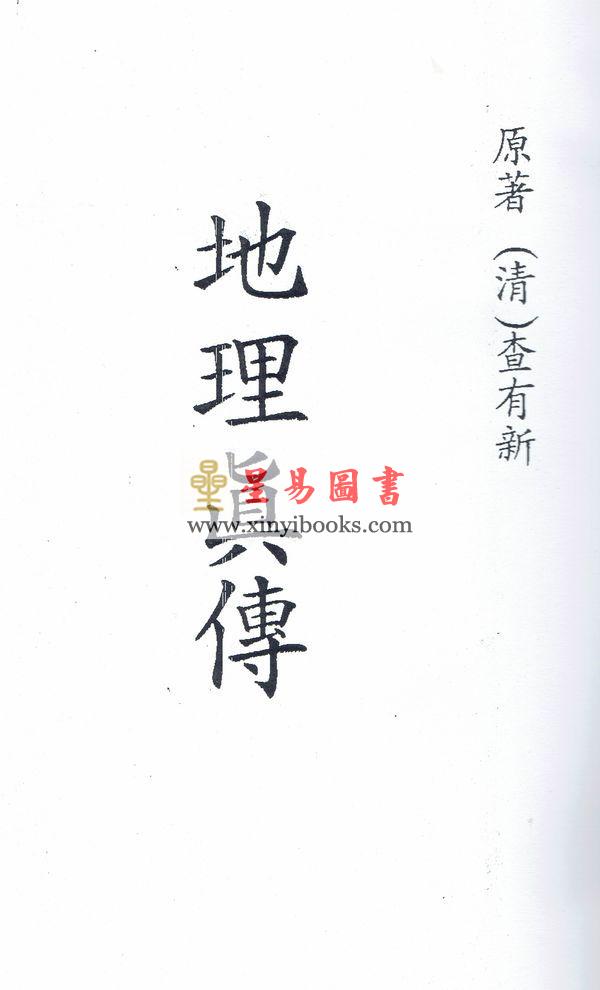 原著 (清)查有新
地理眞傳
星易圖書
www.xinyibooks.com